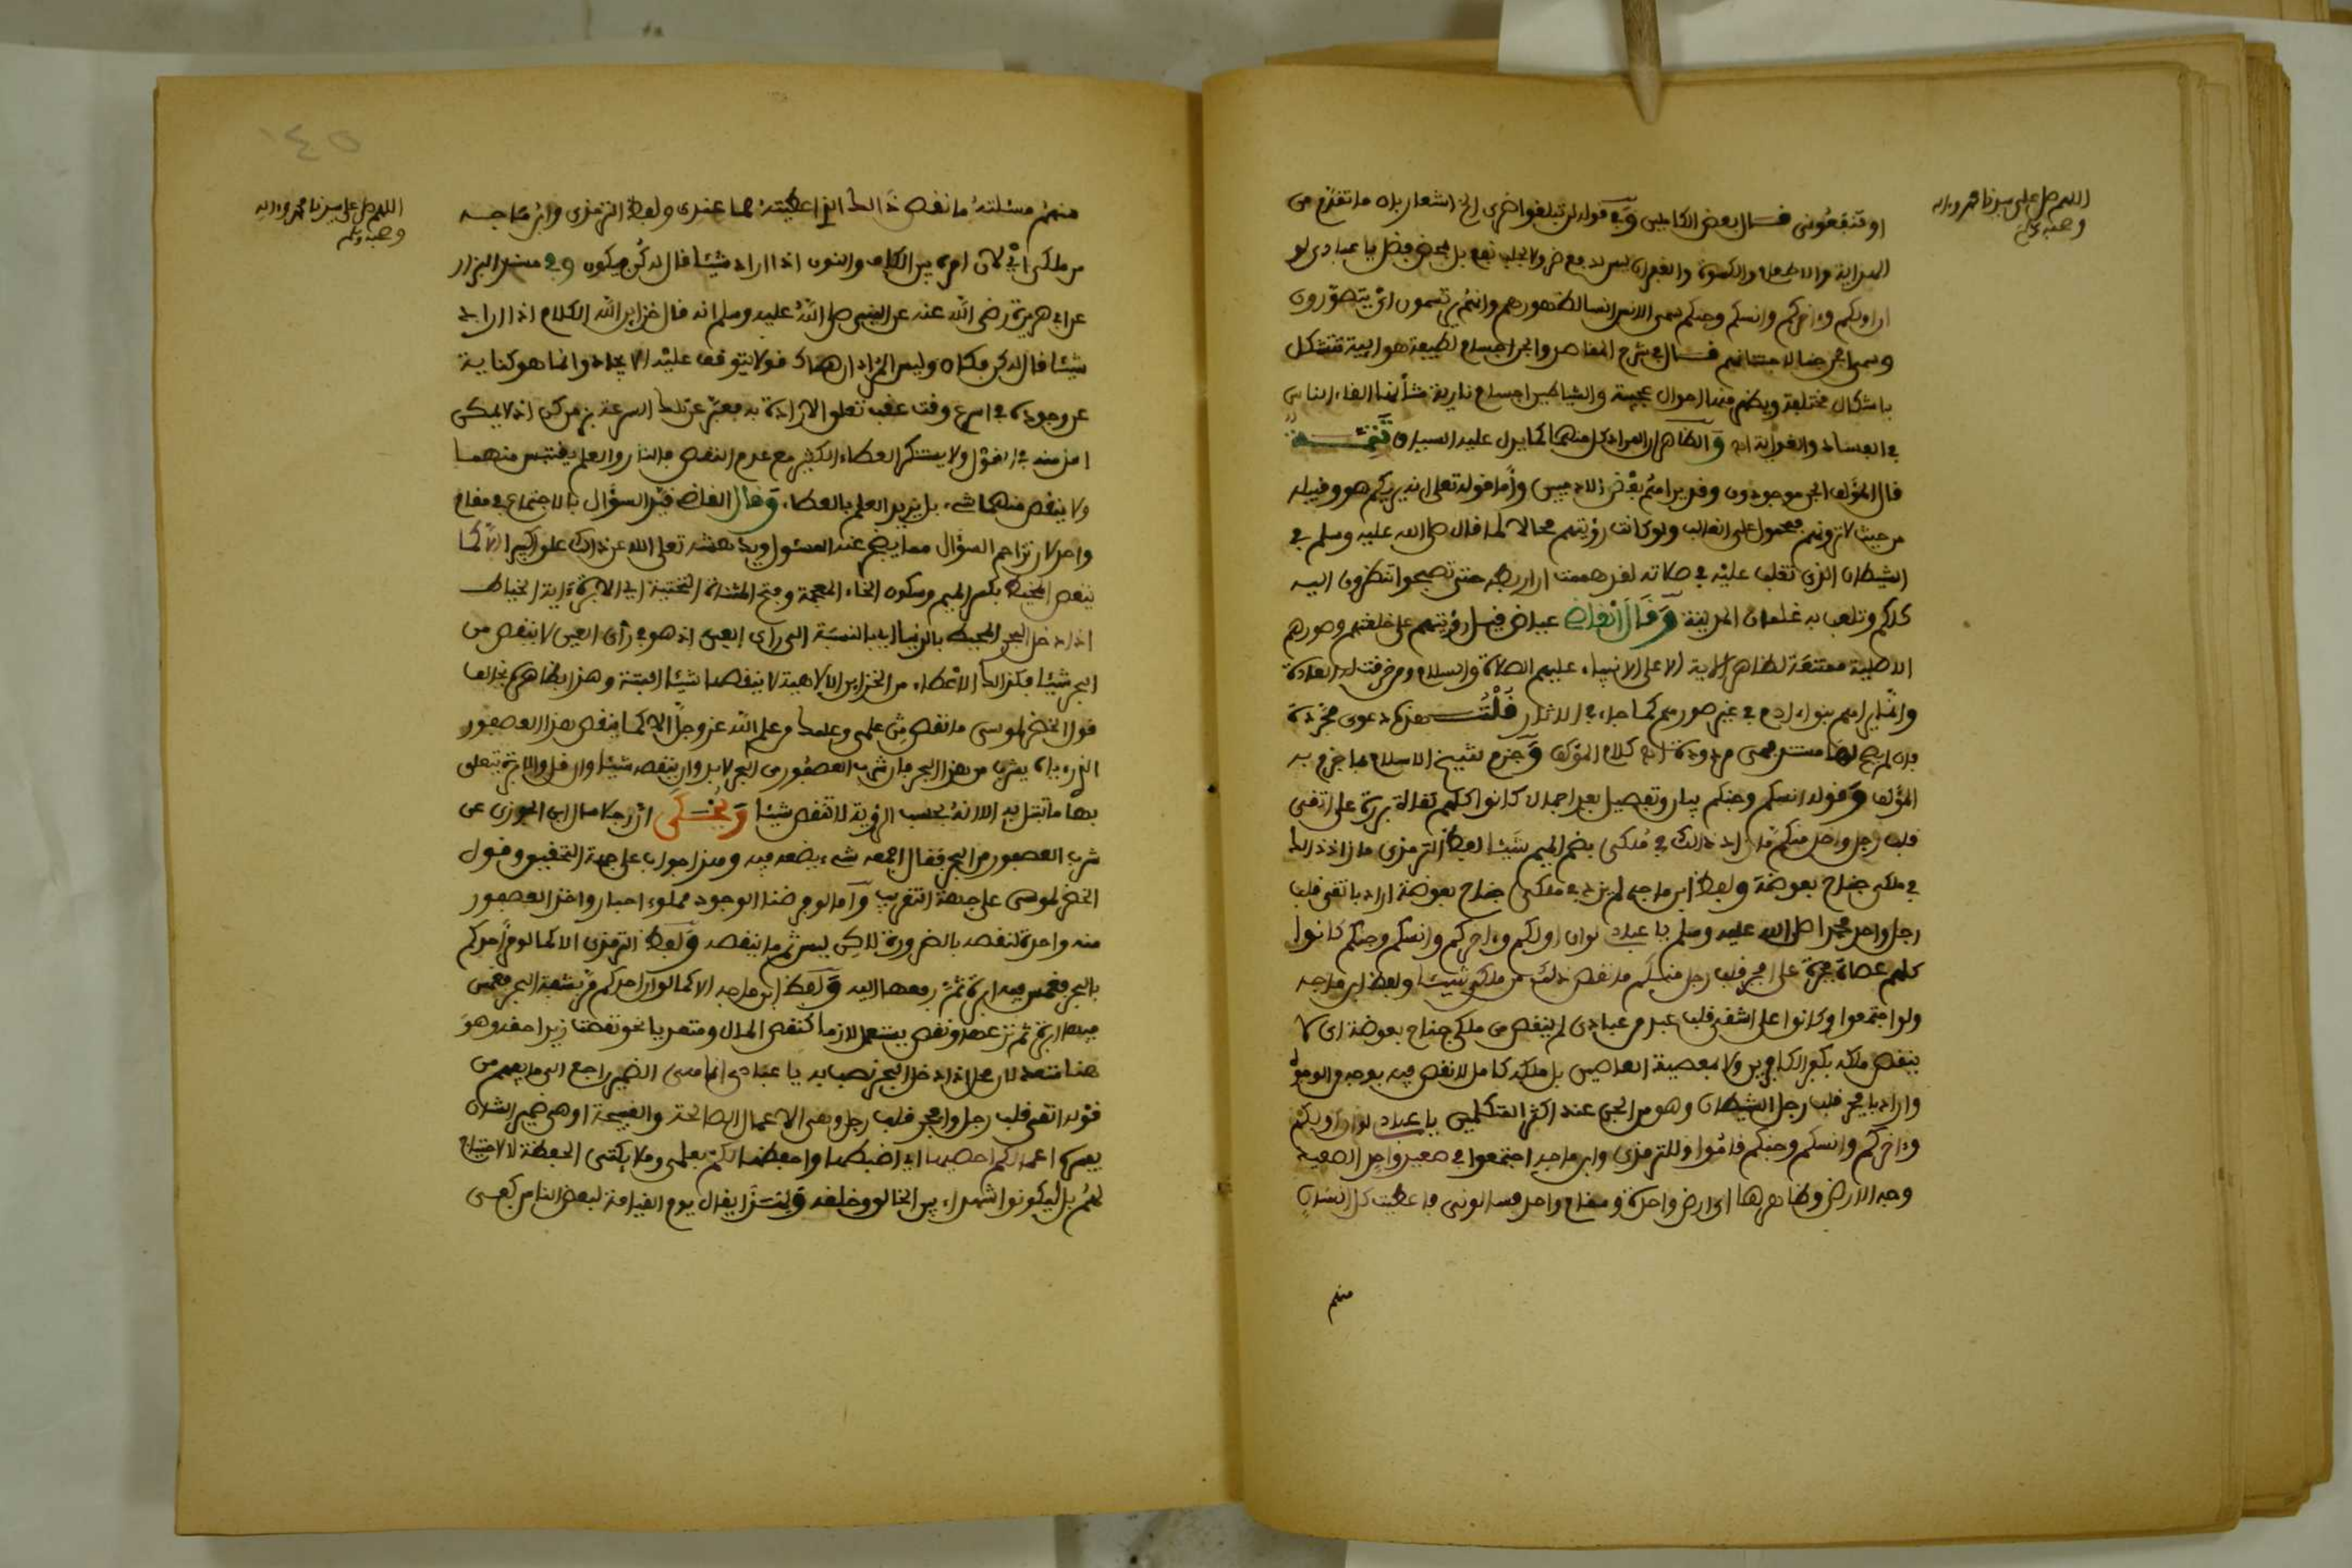 اللهم صل على سيدنا محمد وءاله
وصحبه وسلم
او تنفعوني قال بعض الكاملين وفي قوله لن تبلغوا ضري الخ اشعار بان ما تقدم من
الهداية والاطعام والكسوة والغفران ليس لدفع ضر ولا لجلب نفع بل محض فضل يا عبادي لو
ان اولكم وءاخركم وانسكم وجنكم سمى الانس انسا لظهورهم وانهم يؤنسون اي يتصورون
وسمى الجن جنا لاجتنانهم قال في شرح المقاصد والجن اجسام لطيفة هوائية تتشكل
باشكال مختلفة ويظهر منها احوال عجيبة والشياطين اجسام نارية شأنها القاء الناس
في الفساد والغواية اه والظاهر ان المراد كل منهما كما يدل عليه السياق تتمة
قال المؤلف الجن موجودون وقد يراهم بعض الادميين واما قوله تعلى انه يريكم هو وقبيله
من حيث لا ترونهم فمحمول على الغالب ولو كانت رؤيتهم محالا لما قال صلى الله عليه وسلم في
الشيطان الذي تفلت عليه في صلاته لقد هممت ان اربطه حتى تصبحوا تنظرون اليه
كلكم وتلعب به غلمان المدينة وقال القاضي عياض قيل رؤيتهم على خلقتهم وصورهم
الاصلية ممتنعة لظاهر الاية الا على الانبياء عليهم الصلاة والسلام ومن خرقت له العادة
وانما يراهم بنوا ءادم في غير صورهم كما جاء في الاثار قلت هذه دعوى مجردة
فان لم يصح لها مستند فهي مردودة اه كلام المؤلف وجزم شيخ الاسلام بما جزم به
المؤلف وقوله انسكم وجنكم بيان وتفصيل بعد اجمال كانوا كلهم تقاة بررة على اتقى
قلب رجل واحد منكم ما زاد ذلك في ملكي بضم الميم شيئا لفظ الترمذي ما زاد ذالك
في ملكي جناح بعوضة ولفظ ابن ماجه لم يزد في ملكي جناح بعوضة اراد باتقى قلب
رجل واحد محمدا صلى الله عليه وسلم يا عبادي لو ان اولكم وءاخركم وانسكم وجنكم كانوا
كلهم عصاة فجرة على افجر قلب رجل منكم ما نقص ذلك من ملكي شيئا ولفظ ابن ماجه
ولو اجتمعوا وكانوا على اشقى قلب عبد من عبادي لم ينقص من ملكي جناح بعوضة اى لا
ينقص ملكه بكفر الكافرين ولا بمعصية العاصين بل ملكه كامل لا نقص فيه بوجه من الوجوه
واراد بافجر قلب رجل الشيطان وهو من الجن عند اكثر المتكلمين يا عبادي لو ان اولكم
وءاخركم وانسكم وجنكم قاموا وللترمذي وابن ماجه اجتمعوا في صعيد واحد الصعيد
وجه الارض وظاهرها اى ارض واحدة ومقام واحد فسالوني فاعطيت كل انسان
منهم
١٤٥
اللهم صل على سيدنا محمد وءاله
وصحبه وسلم
منهم مسئلته ما نقص ذالك الذي اعطيته مما عندي ولفظ الترمذي وابن ماجه
من ملكي اي لان امره بين الكاف والنون اذا اراد شيئا قال له كن فيكون وفي مسند البزار
عن ابي هريرة رضي الله عنه عن النبي صلى الله عليه وسلم انه قال خزاين الله الكلام اذا اراد
شيئا قال له كن فكان وليس المراد ان هناك قولا يتوقف عليه الايجاد وانما هو كناية
عن وجوده في اسرع وقت عقب تعلق الارادة به فعبر عن تلك السرعة بزمن كن اذ لا يمكن
اقل منه في القول ولا يستنكر العطاء الكثير مع عدم النقص فالنار والعلم يقتبس منهما
ولا ينقص منهما شيء بل يزيد العلم بالعطاء وقال القاضي قيد السؤال بالاجتماع في مقام
واحد لان تزاحم السؤال مما يضجر عنه المسئول ويدهشه تعلى الله عن ذلك علوا كبيرا الا كما
ينقص المخيط بكسر الميم وسكون الخاء المعجمة وفتح المثناة التحتية اي الابرة ءالة الخياط
اذا ادخل البحر المحيط بالدنيا اي بالنسبة الى راى العين اذ هو في رأى العين لا ينقص من
البحر شيئا فكذالك الاعطاء من الخزاين الالاهية لا ينقصها شيئا البتة وهذا بظاهره يخالف
قول الخضر لموسى ما نقص من علمي وعلمك من علم الله عز وجل الا كما ينقص هذا العصفور
الذي يشرب من هذا البحر فان شرب العصفور من البحر لا بد وان ينقصه شيئا وان قل والابرة يتعلق
بها ما تبتل به الا انه بحسب الرؤية لا تنقص شيئا ويحكى ان رجلا سال ابن الجوزي عن
شرب العصفور من البحر فقال اجمعه شيء يضعه فيه وهذا جواب على جهة التحقيق وقول
الخضر لموسى على جهة التقريب واما لو فرضنا الوجود مملوءا حبا واخذ العصفور
منه واحدة لنقصه بالضرورة لكن ليس ثم ما ينقصه ولفظ الترمذي الا كما لو ان احدكم مر
بالبحر فغمس فيه ابرة ثم رفعها اليه ولفظ ابن ماجه الا كما لو ان احدكم مر بشفة البحر فغمس
فيها ابرة ثم نزعها ونقص يستعمل لازما كنقص المال ومتعديا نحو نقصت زيدا حقه وهو
هنا متعد لان محل اذا ادخل البحر نصب به يا عبادي انما هى الضمير راجع الى ما يفهم من
قوله اتقى قلب رجل وافجر قلب رجل وهى الاعمال الصالحة والقبيحة او هى ضمير الشان
يفسره اعمالكم احصيها اي اضبطها واحفظها لكم بعلمي وملايكتي الحفظة لا لاحتياج
لهم بل ليكونوا شهداء بين الخالق وخلقه ولهذا يقال يوم القيامة لبعض الناس كفى